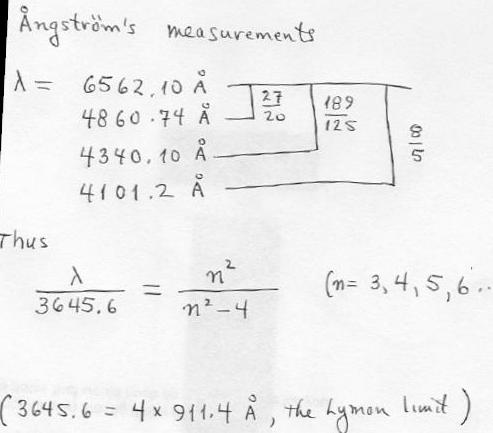 Ångström's measurements
λ = 6562.10 Å
4860.74 Å 27/20
4340.10 Å 189/125
4101.2 Å 8/5
Thus
λ/3645.6 = n²/n²-4 (n= 3,4,5,6..
(3645.6 = 4 x 911.4 Å, the Lyman limit)